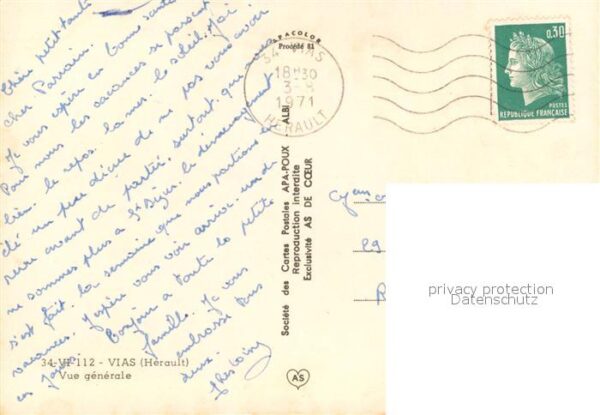 Chère petite tante
cher Parrain.
Je vous espère en bonne santé
Pour nous les vacances se passent
bien. le repos. la mer. le soleil. J'ai
été un peu déçue de ne pas vous avoir
revue avant de partir, surtout que nous
ne sommes plus à St. le déménagement
s'est fait la semaine que nous partions en
vacances. J'espère vous voir arriver un de
ces jours. Bonjour à toute la petite
famille. Je vous
embrasse tous
deux.
34-VI-112 - VIAS (Hérault)
Vue générale
APACOLOR
Procédé 81
ALBI
Société des Cartes Postales APA-POUX
Reproduction interdite
Exclusivité AS DE CŒUR
AS
34 VIAS
18H30
3-9
1971
HERAULT
0,30
POSTES
REPUBLIQUE FRANÇAISE
29
privacy protection
Datenschutz